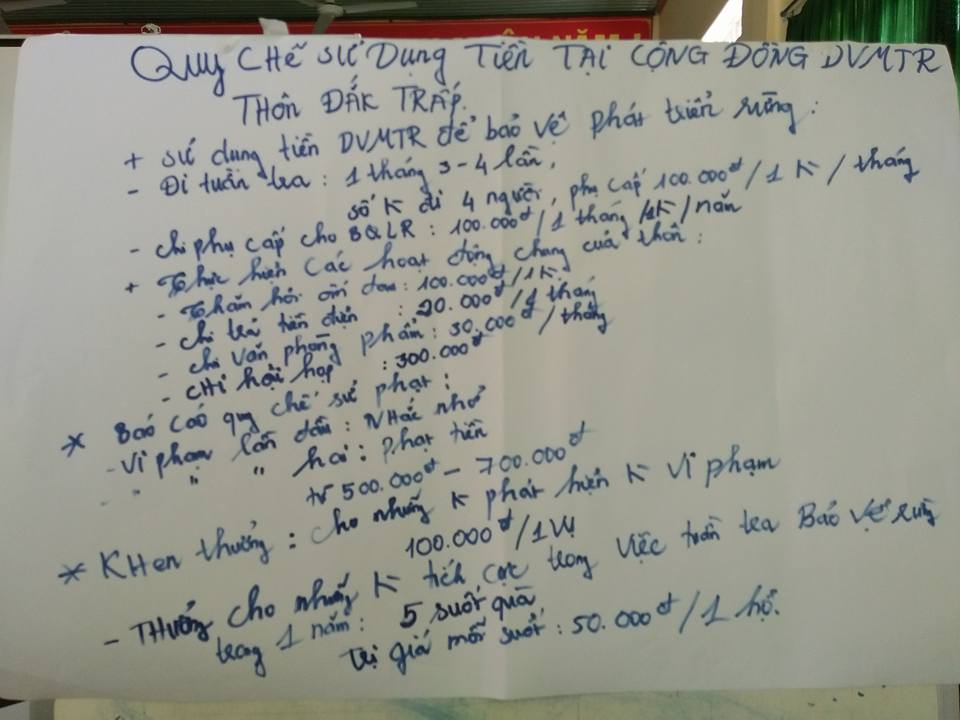 QUY CHẾ SỬ DỤNG TIỀN TẠI CỘNG ĐỒNG DVMTR
THÔN ĐẮK TRẤP.
+ Sử dụng tiền DVMTR để bảo vệ phát triển rừng:
- Đi tuần tra: 1 tháng 3-4 lần,
số K đi 4 người, phụ cấp 100.000đ/1 K/tháng
- chi phụ cấp cho BQLR: 100.000đ/1 tháng /1K/năm
+ Thực hiện các hoạt động chung của thôn:
- Thăm hỏi ốm đau: 100.000đ/1K.
- chi trả tiền điện : 20.000đ/1 tháng
- chi văn phòng phẩm: 30.000đ/tháng
- CHi hội họp : 300.000đ
* Báo cáo quy chế sử phạt:
- Vi phạm lần đầu: NHắc nhở
- " " " hai: phạt tiền
từ 500.000đ - 700.000đ
* KHen thưởng: cho những K phát hiện K vi phạm
100.000đ/1 Vụ
- THưởng cho những K tích cực trong việc tuần tra Bảo vệ rừng
trong 1 năm: 5 suất quà
trị giá mỗi suất: 50.000đ/1 hộ.